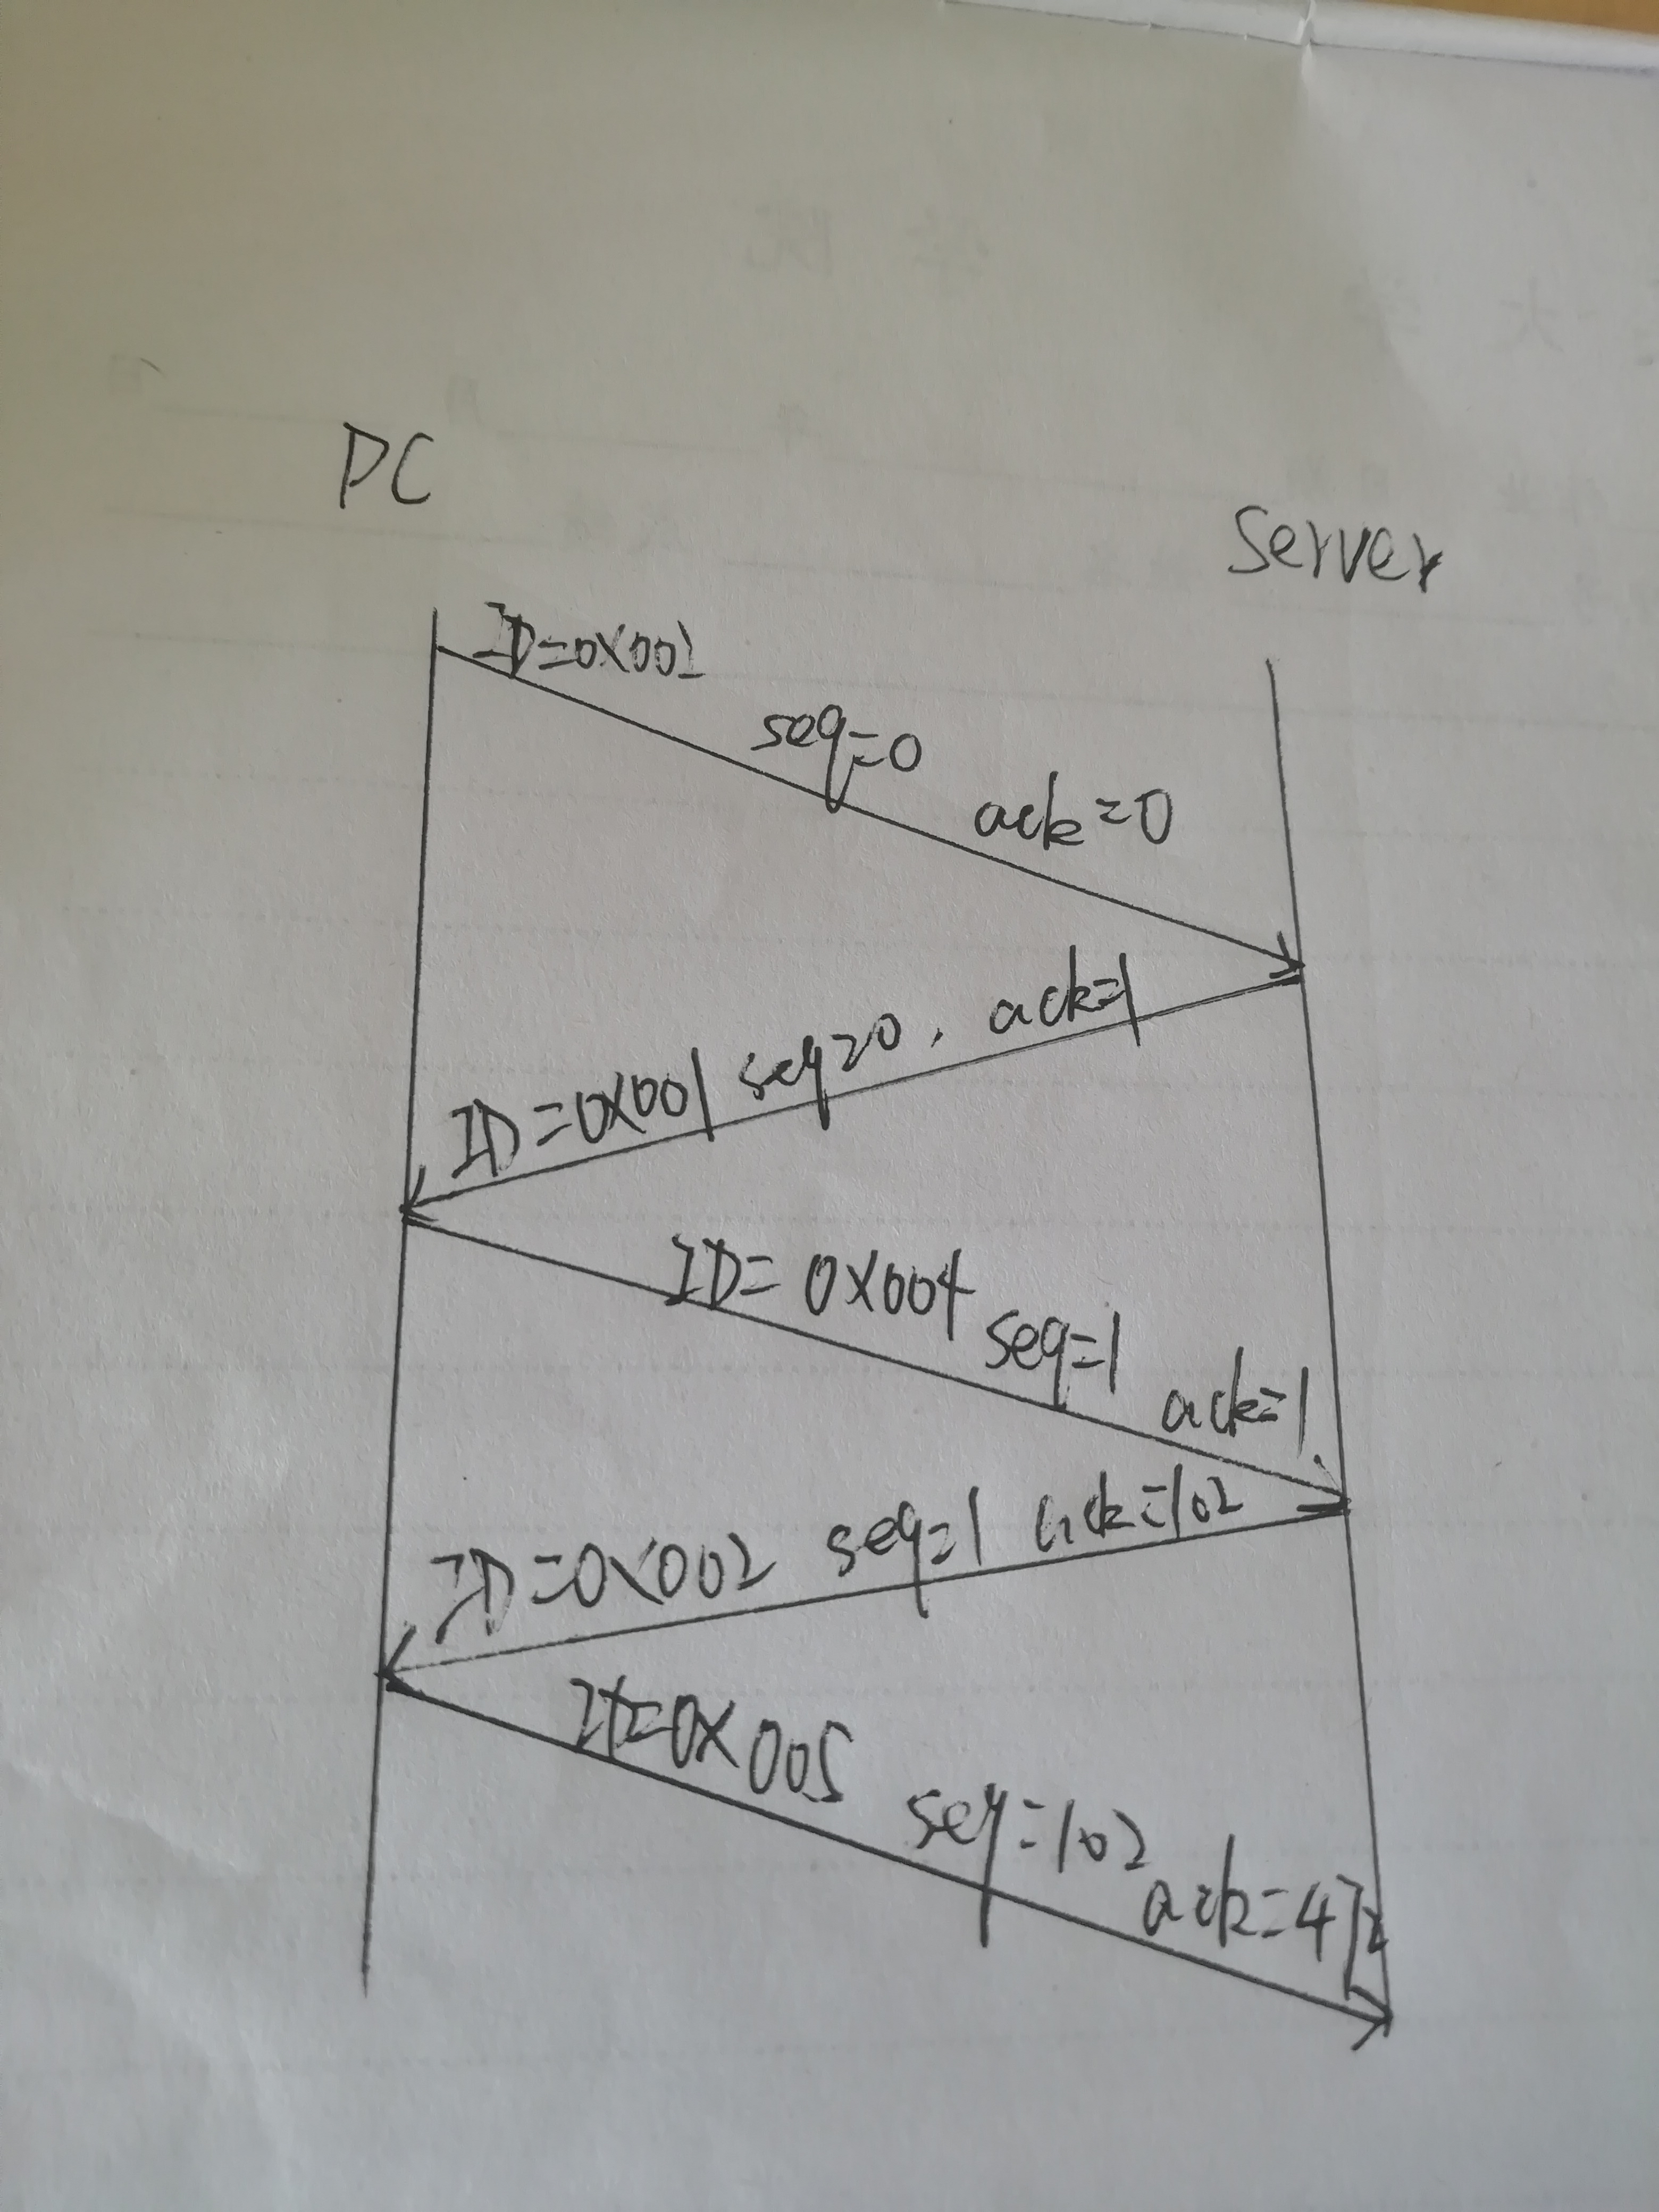 PC
Server
ID=0x002
seq=0
ack=0
ID=0x001 seq=0, ack=1
ID=0x004 seq=1 ack=1
ID=0x002 seq=1 ack=102
ID=0x005 seq=102
ack=472